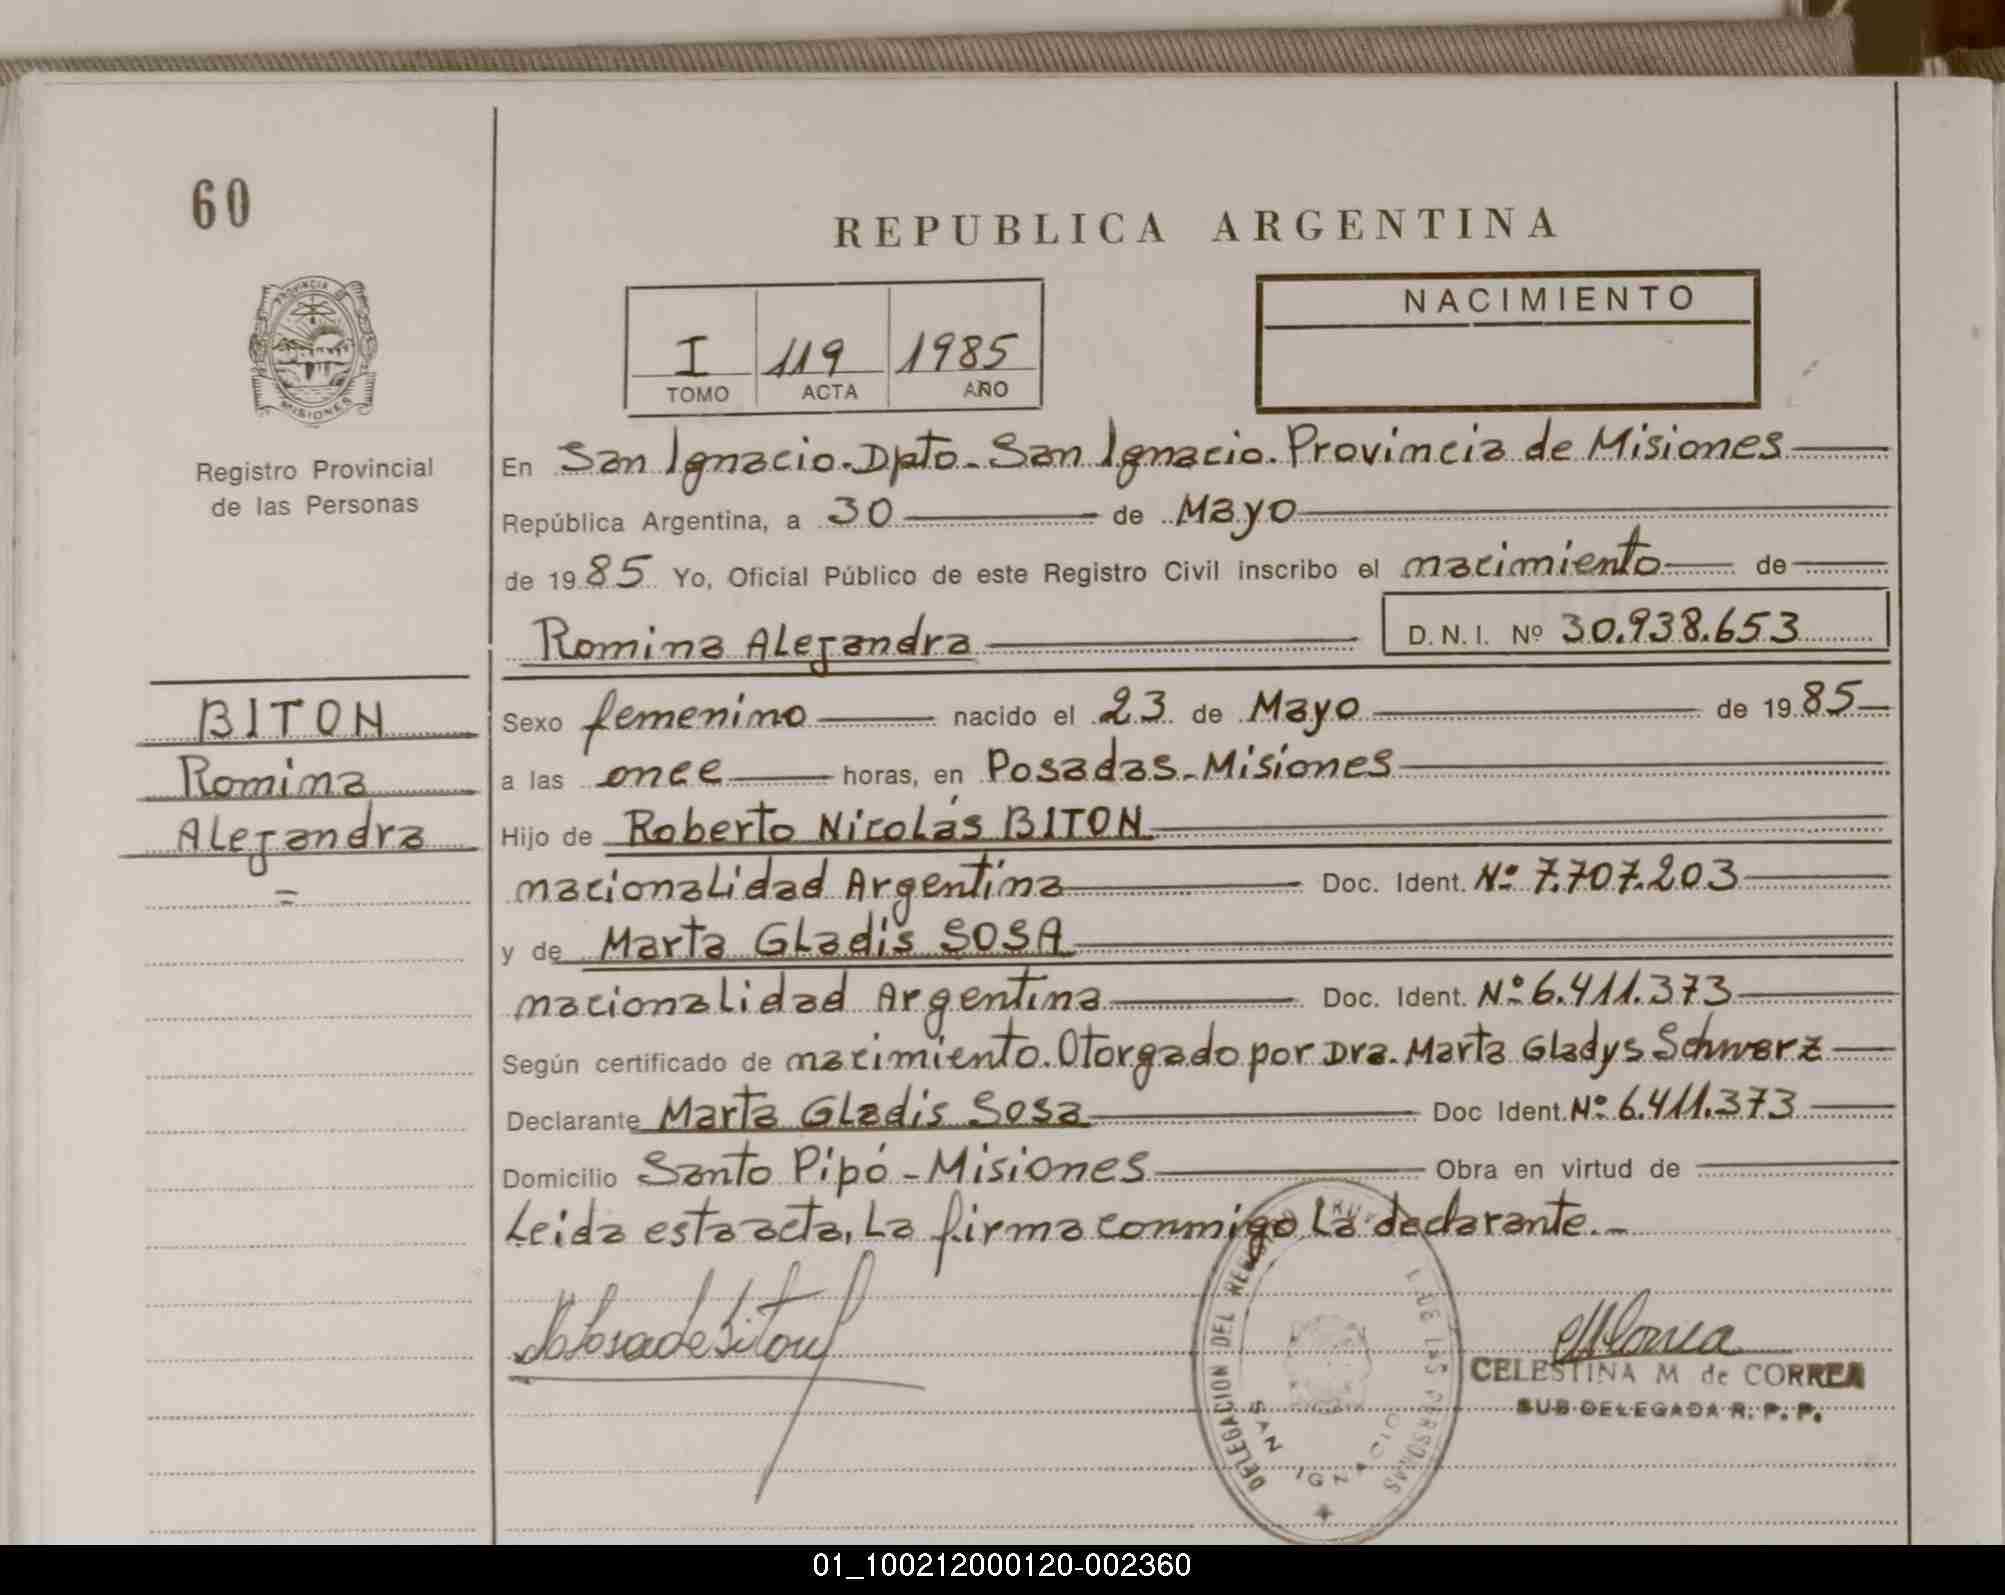 60
REPUBLICA ARGENTINA
PROVINCIA DE
MISIONES
Registro Provincial
de las Personas
I 119 1985
TOMO ACTA AÑO
NACIMIENTO
En San Ignacio. Dpto. San Ignacio. Provincia de Misiones
República Argentina, a 30 de Mayo
de 1985 Yo, Oficial Público de este Registro Civil inscribo el nacimiento de
Romina Alejandra D.N.I. Nº 30.938.653
BITON
Romina
Alejandra
=
Sexo femenino nacido el 23 de Mayo de 1985
a las once horas, en Posadas-Misiones
Hijo de Roberto Nicolás BITON
nacionalidad Argentina Doc. Ident. Nº 7.707.203
y de Marta Gladis SOSA
nacionalidad Argentina Doc. Ident. Nº 6.411.373
Según certificado de nacimiento. Otorgado por Dra. Marta Gladys Schwarz
Declarante Marta Gladis Sosa Doc Ident. Nº 6.411.373
Domicilio Santo Pipó - Misiones Obra en virtud de
Leida esta acta, La firma conmigo La declarante.-
DELEGACION DEL DE LAS PERSONAS
SAN IGNACIO
CELESTINA M de CORREA
SUB DELEGADA R. P. P.
01_100212000120-002360